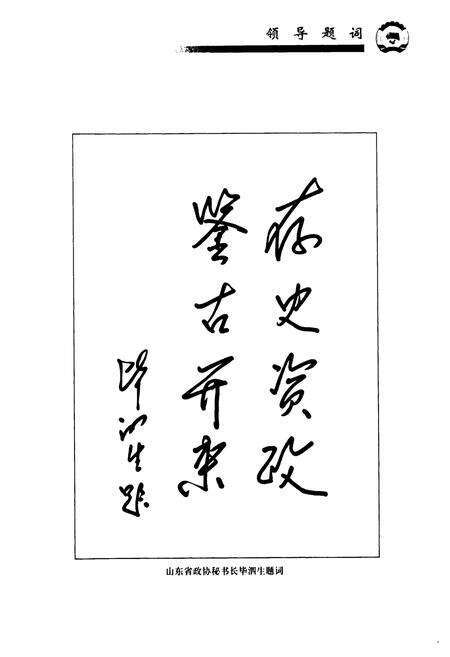 领导题词
存史资政
鉴古开
毕泗生题
山东省政协秘书长毕泗生题词